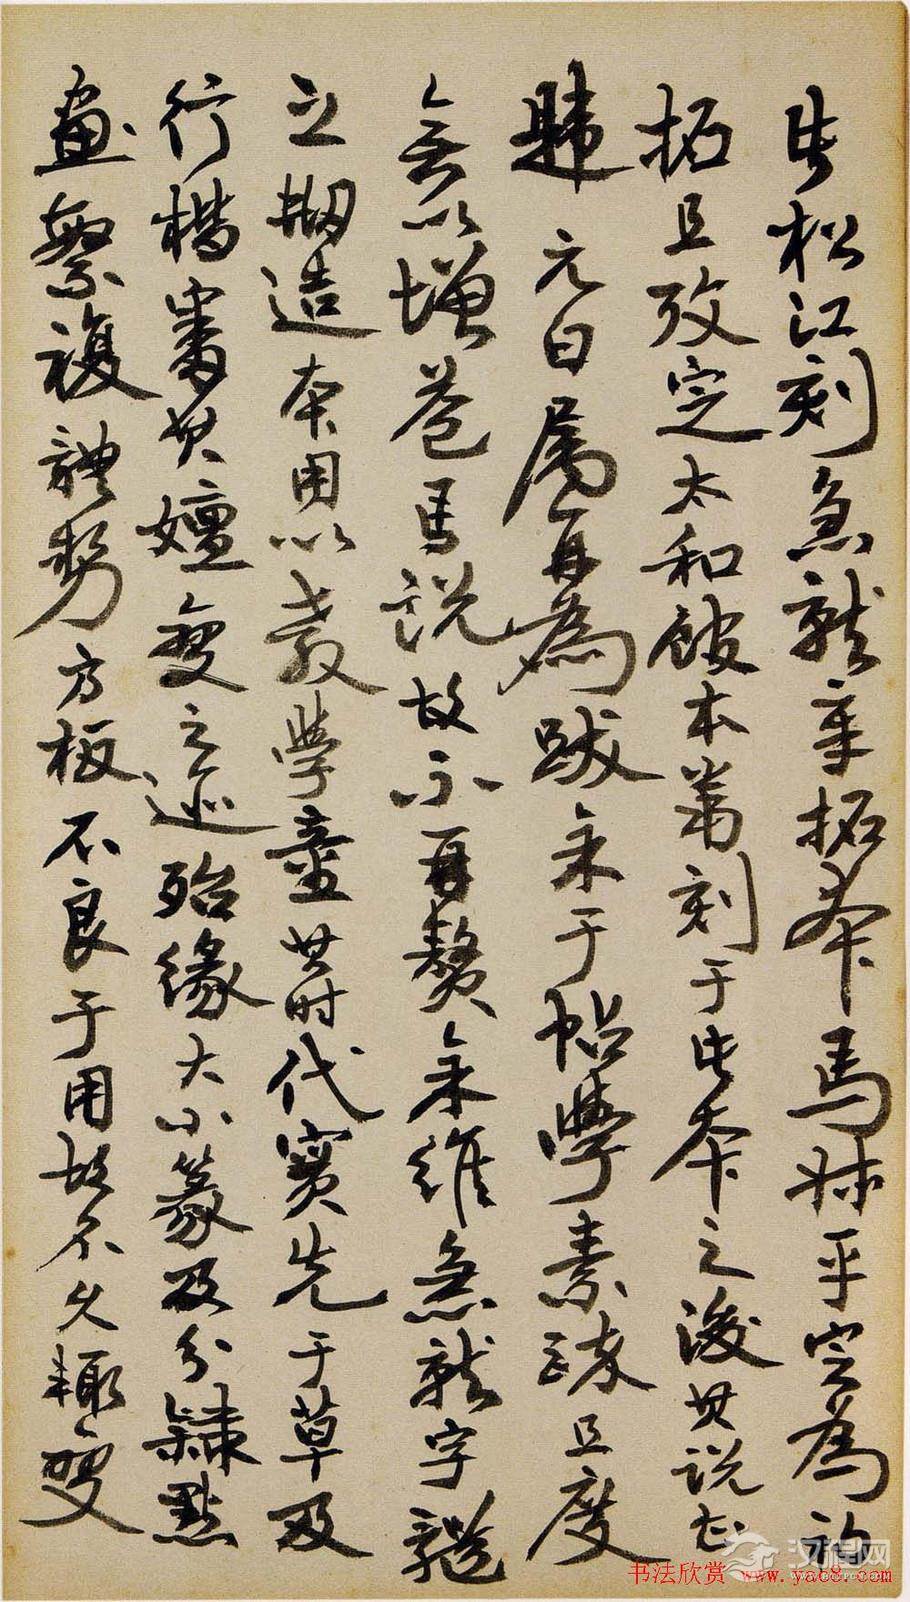 此松江刻急就章拓本馬叔平定為初
拓且攷定太和館本第刻于此本之後其說甚
韙元白屬再為跋余于帖學素疎且度
無以增益馬說故不再贅余維急就字體
之刱造本用以教學童其时代實先于草及
行楷審其嬗變之迹殆緣大小篆及分隸點
畫繁複體勢方板不良于用故不久輒變
书法欣赏 www.yac8.com
汉程网